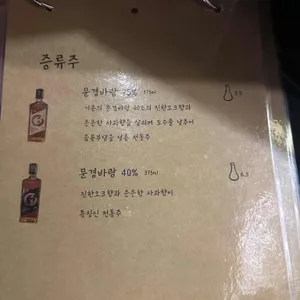 증류주
문경바람 25% 375ml
기존의 문경바람 40도의 진한오크향과
은은한 사과향을 살리며 도수를 낮추어
음용부담을 낮춘 전통주
문경바람 40% 375ml
진한오크향과 은은한 사과향이
특징인 전통주